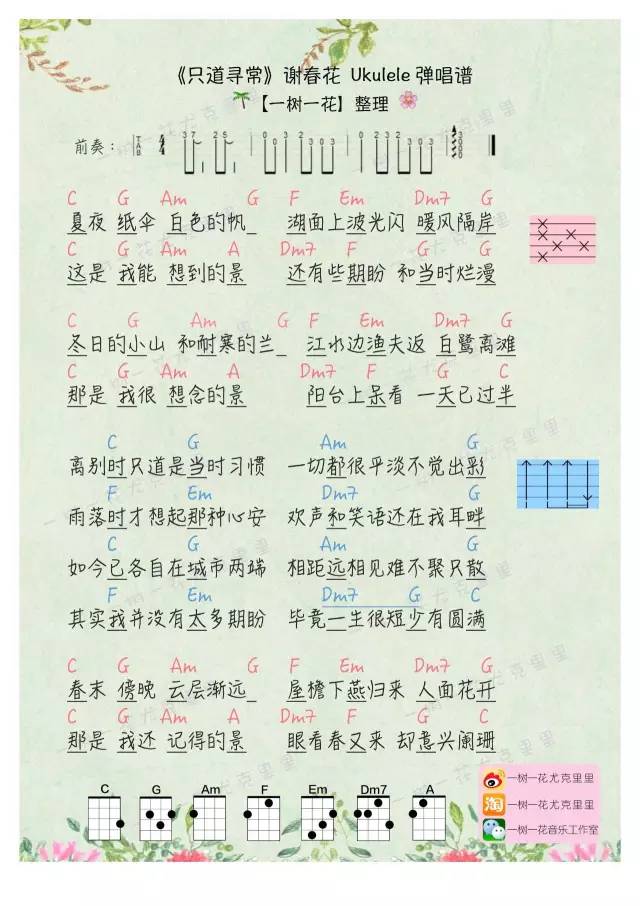 《只道寻常》谢春花 Ukulele 弹唱谱
【一树一花】整理
前奏：
C G Am G F Em Dm7 G
夏夜 纸伞 白色的帆_ 湖面上波光闪 暖风隔岸
C G Am A Dm7 F G
这是 我能 想到的景 还有些期盼 和当时烂漫
C G Am G F Em Dm7 G
冬日的小山 和耐寒的兰_ 江水边渔夫返 白鹭离滩
C G Am A Dm7 F G C
那是 我很 想念的景 阳台上呆看 一天已过半
C G Am G
离别时只道是当时习惯 一切都很平淡不觉出彩
F Em Dm7 G
雨落时才想起那种心安 欢声和笑语还在我耳畔
C G Am G
如今已各自在城市两端 相距远相见难不聚只散
F Em Dm7 G C
其实我并没有太多期盼 毕竟一生很短少有圆满
C G Am G F Em Dm7 G
春末 傍晚 云层渐远_ 屋檐下燕归来 人面花开
C G Am A Dm7 F G C
那是 我还 记得的景 眼看春又来 却惹兴阑珊
C G Am F Em Dm7 A
一树一花尤克里里
淘 一树一花尤克里里
一树一花音乐工作室